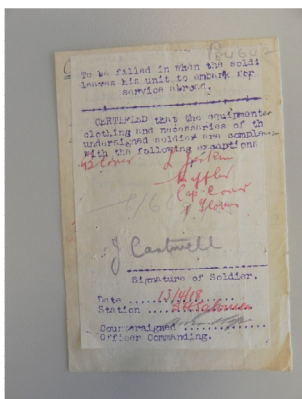 To be filled in when the soldi
leaves his unit to embark for
service abroad.
CERTIFIED that the equipmente
clothing and necessaries of th
undersigned soldier are complee
with the following exceptions
Muffler
Cap Cover
Gloves
J Cantwell
Signature of Soldier.
Date ....13/4/18
Station ....
Countersigned ..............
Officer Commanding.